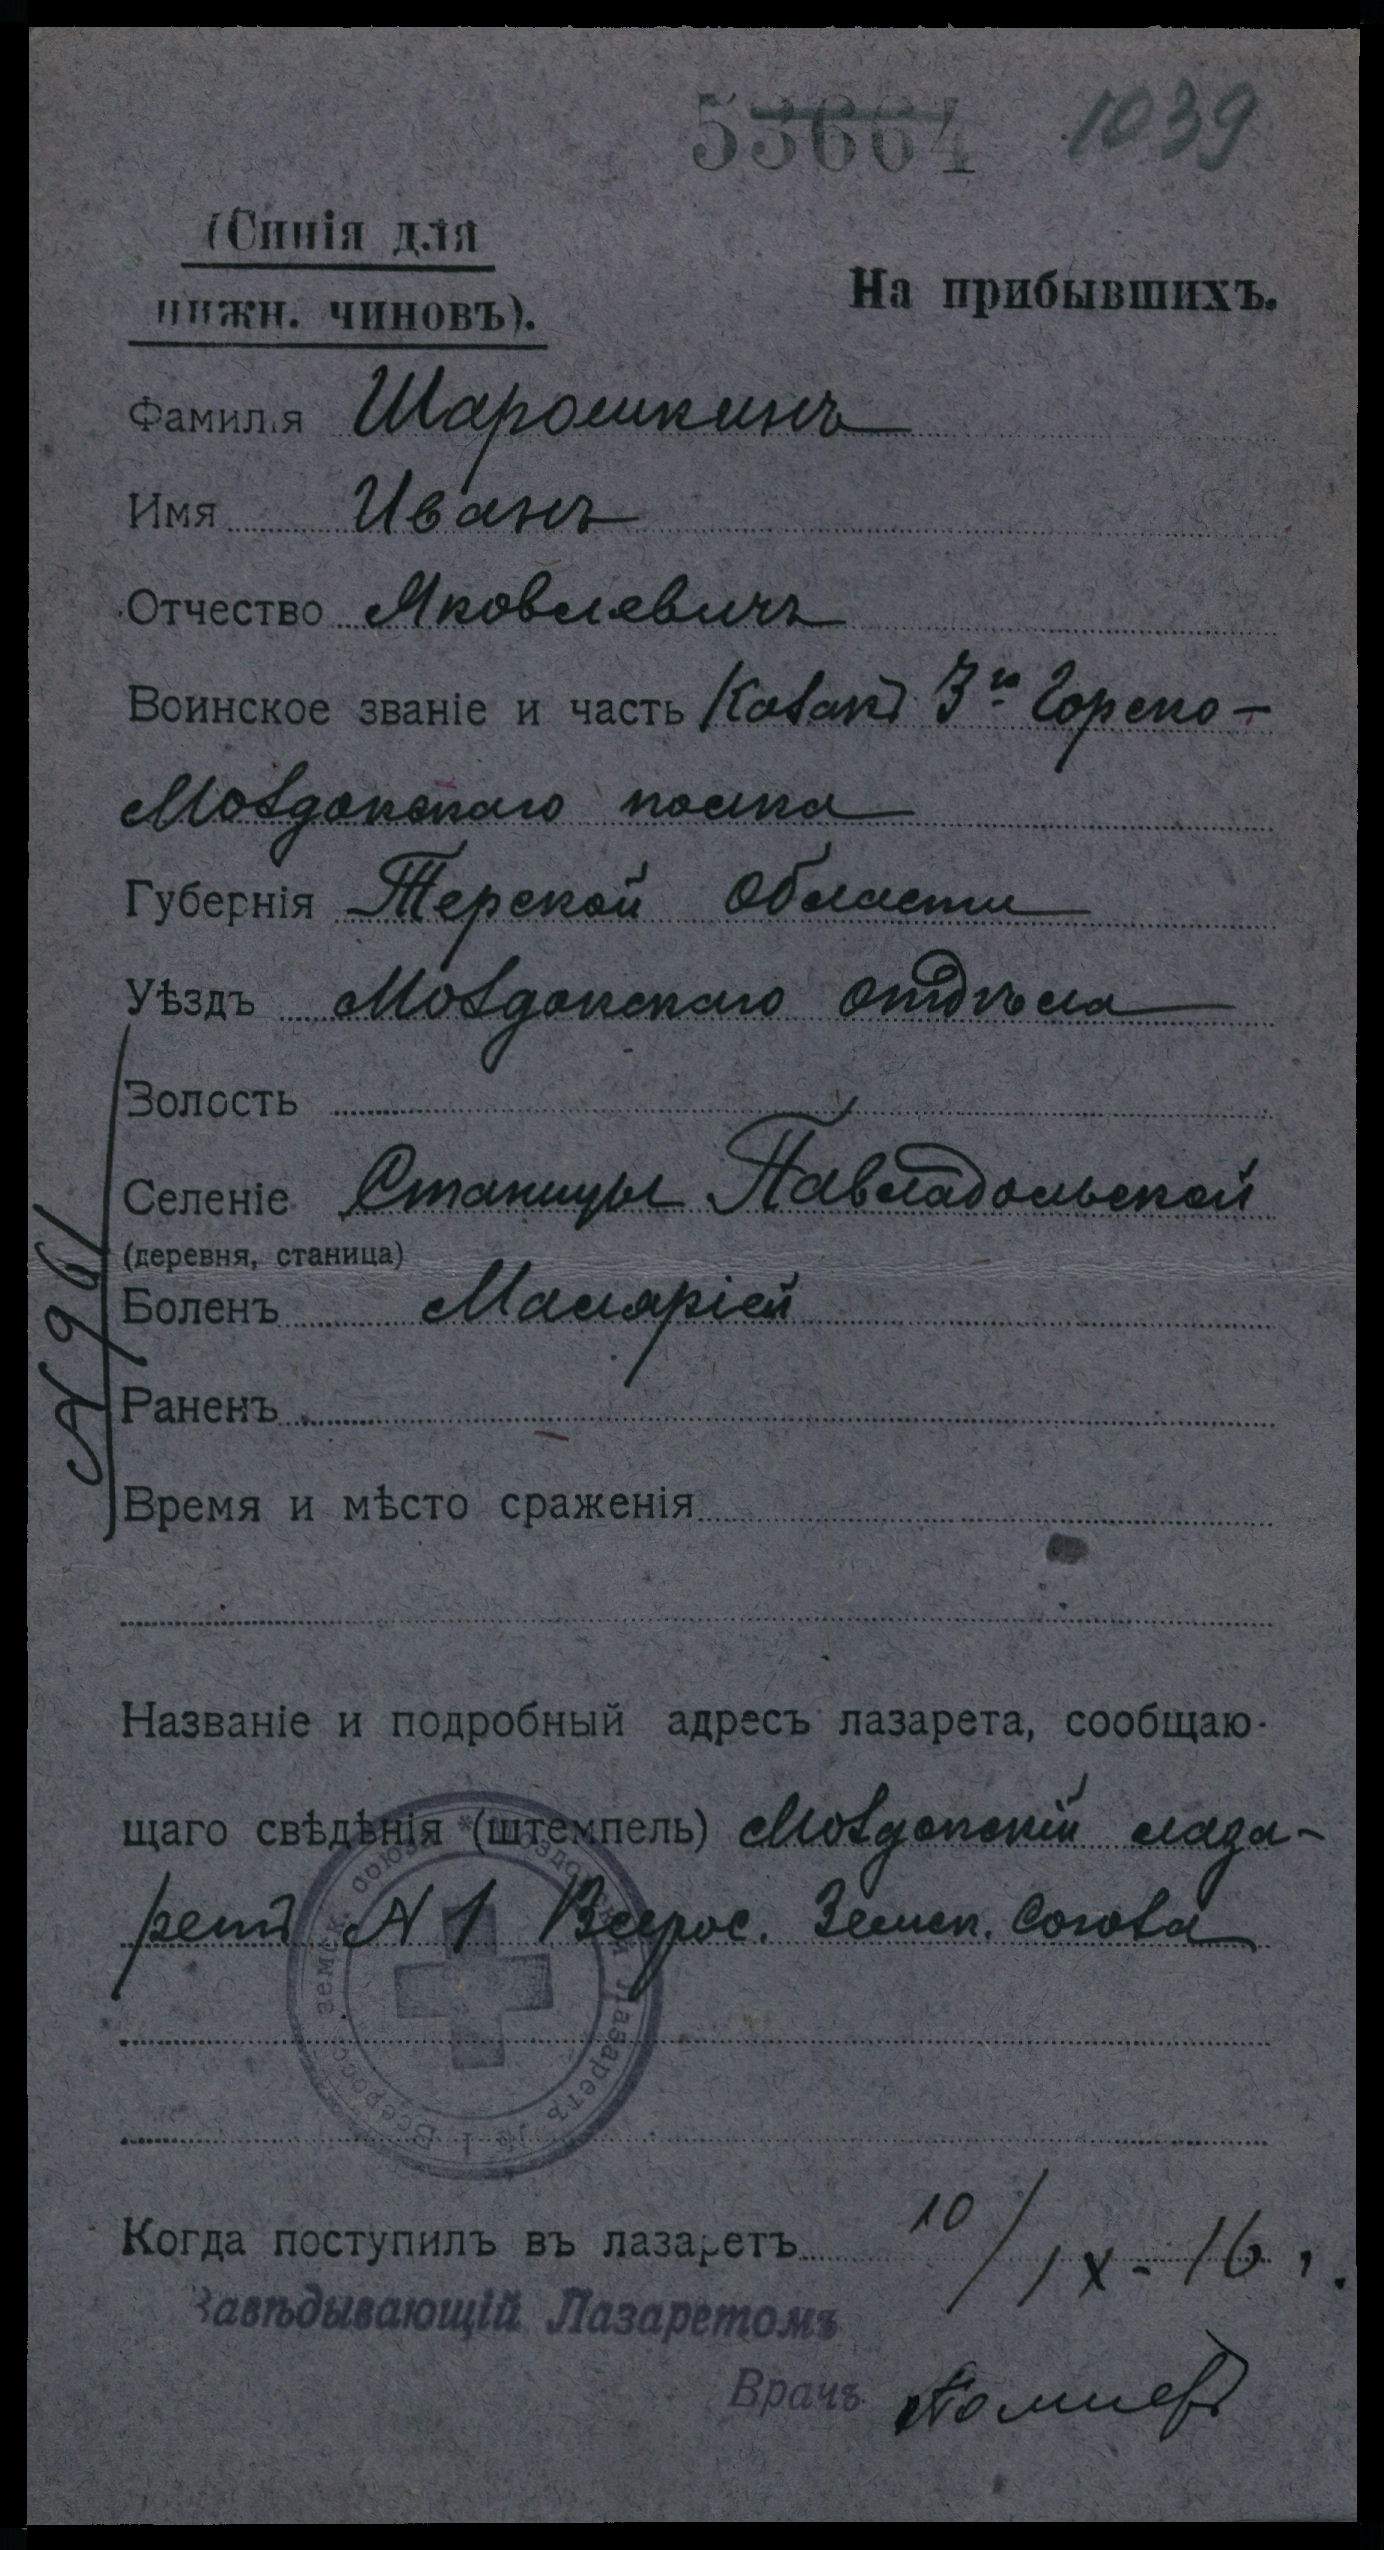 53664 1039
(Синія для
нижн. чиновъ).
На прибывшихъ.
Фамилія Шарошкинъ
Имя Иванъ
Отчество Яковлевичъ
Воинское званіе и часть Козакъ 3го Горско-
Моздокскаго полка
Губернія Терской Области
Уѣздъ Моздокскаго отдѣла
Золость
Селеніе Станицы Павлодольской
(деревня, станица)
Боленъ Маляріей
Раненъ
Время и мѣсто сраженія
N 961
Названіе и подробный адресъ лазарета, сообщаю-
щаго свѣдѣнія (штемпель) Моздокскій лаза-
ретъ N 1 Всерос. Земск. Союза
Моздокскій Лазаретъ № 1 Всеросс. земск. союза *
Когда поступилъ въ лазаретъ 10/IX-16 г.
Завѣдывающій Лазаретомъ
Врачъ